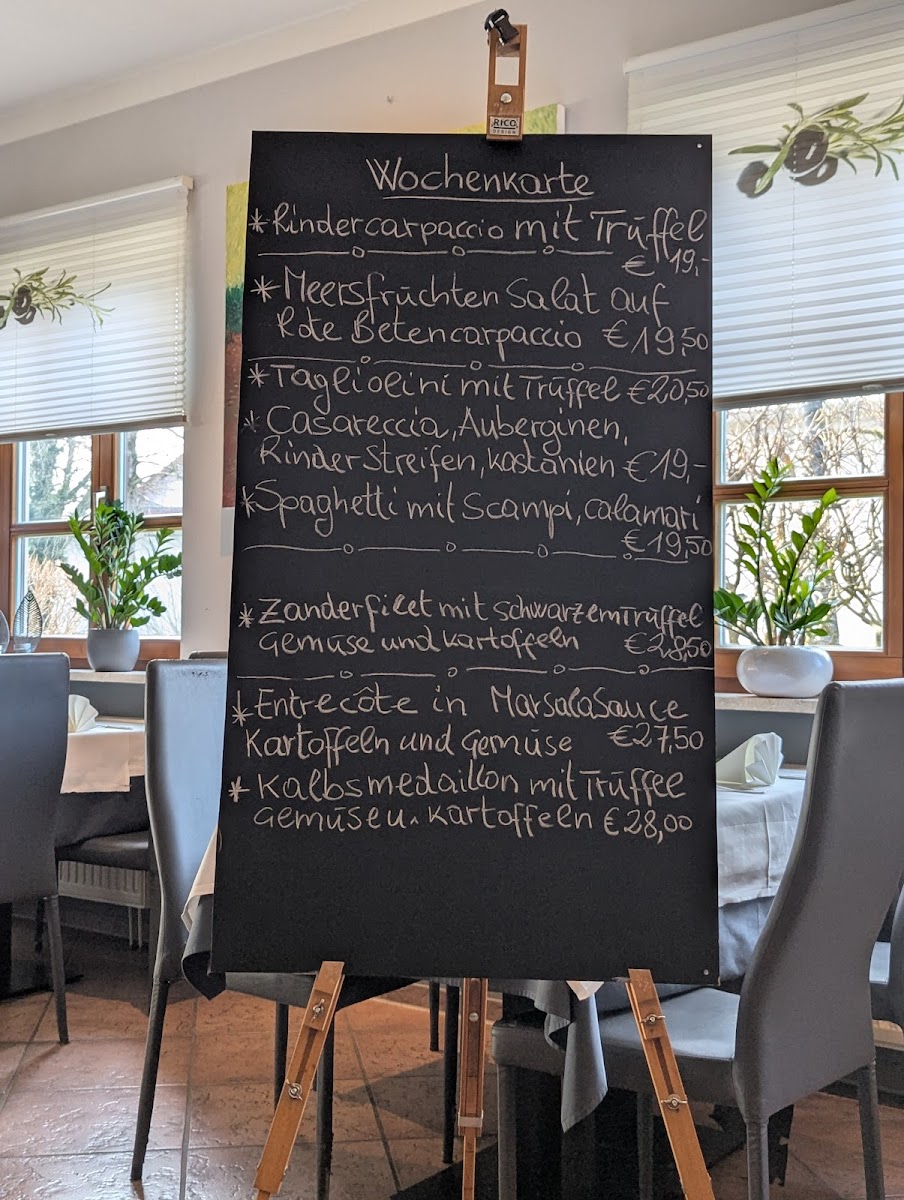 RICO
DESIGN
Wochenkarte
* Rindercarpaccio mit Trüffel
€ 19,-
* Meersfrüchten Salat auf
Rote Betencarpaccio €19,50
* Tagliolini mit Trüffel €20,50
* Casareccia, Auberginen,
Rinder Streifen, kastanien €19,-
* Spaghetti mit Scampi, calamari
€19,50
* Zanderfilet mit schwarzem Trüffel
Gemüse und kartoffeln €28,50
* Entrecôte in MarsalaSauce
Kartoffeln und Gemüse €27,50
* Kalbsmedaillon mit Trüffel
Gemüse u. kartoffeln €28,00